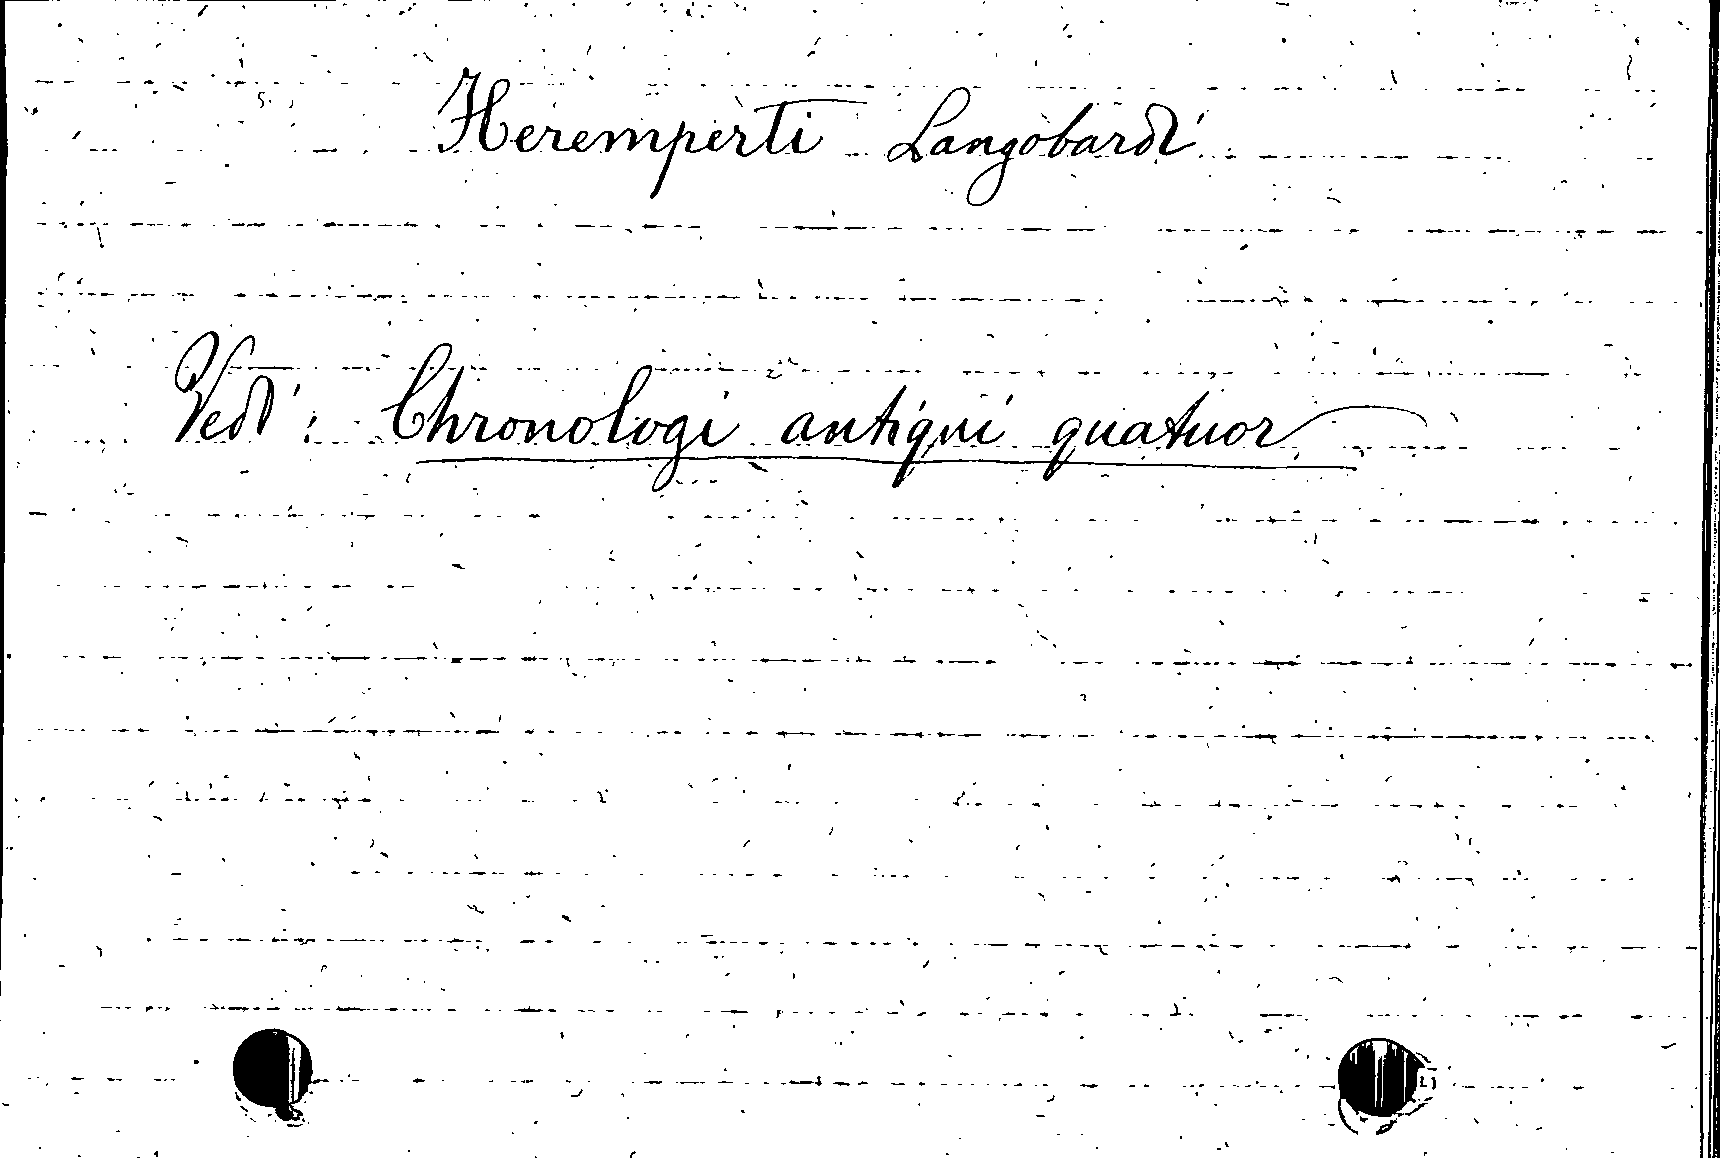 Heremperti Langobardi
Vedi: Chronologi antiqui quatuor